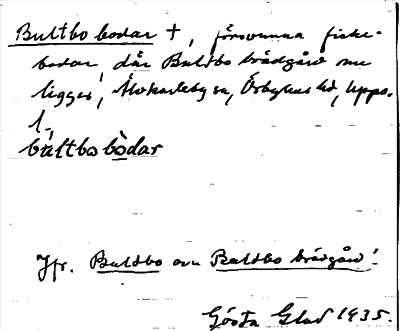 Bultbo bodar †, försvunna fiske-
bodar, där Bultbo brädgård nu
ligger, Älvkarleby sn, Örbyhus hd, Upps.
l.
bultbobòdar
Jfr. Bultbo och Bultbo brädgård!
Gösta Glad 1935.